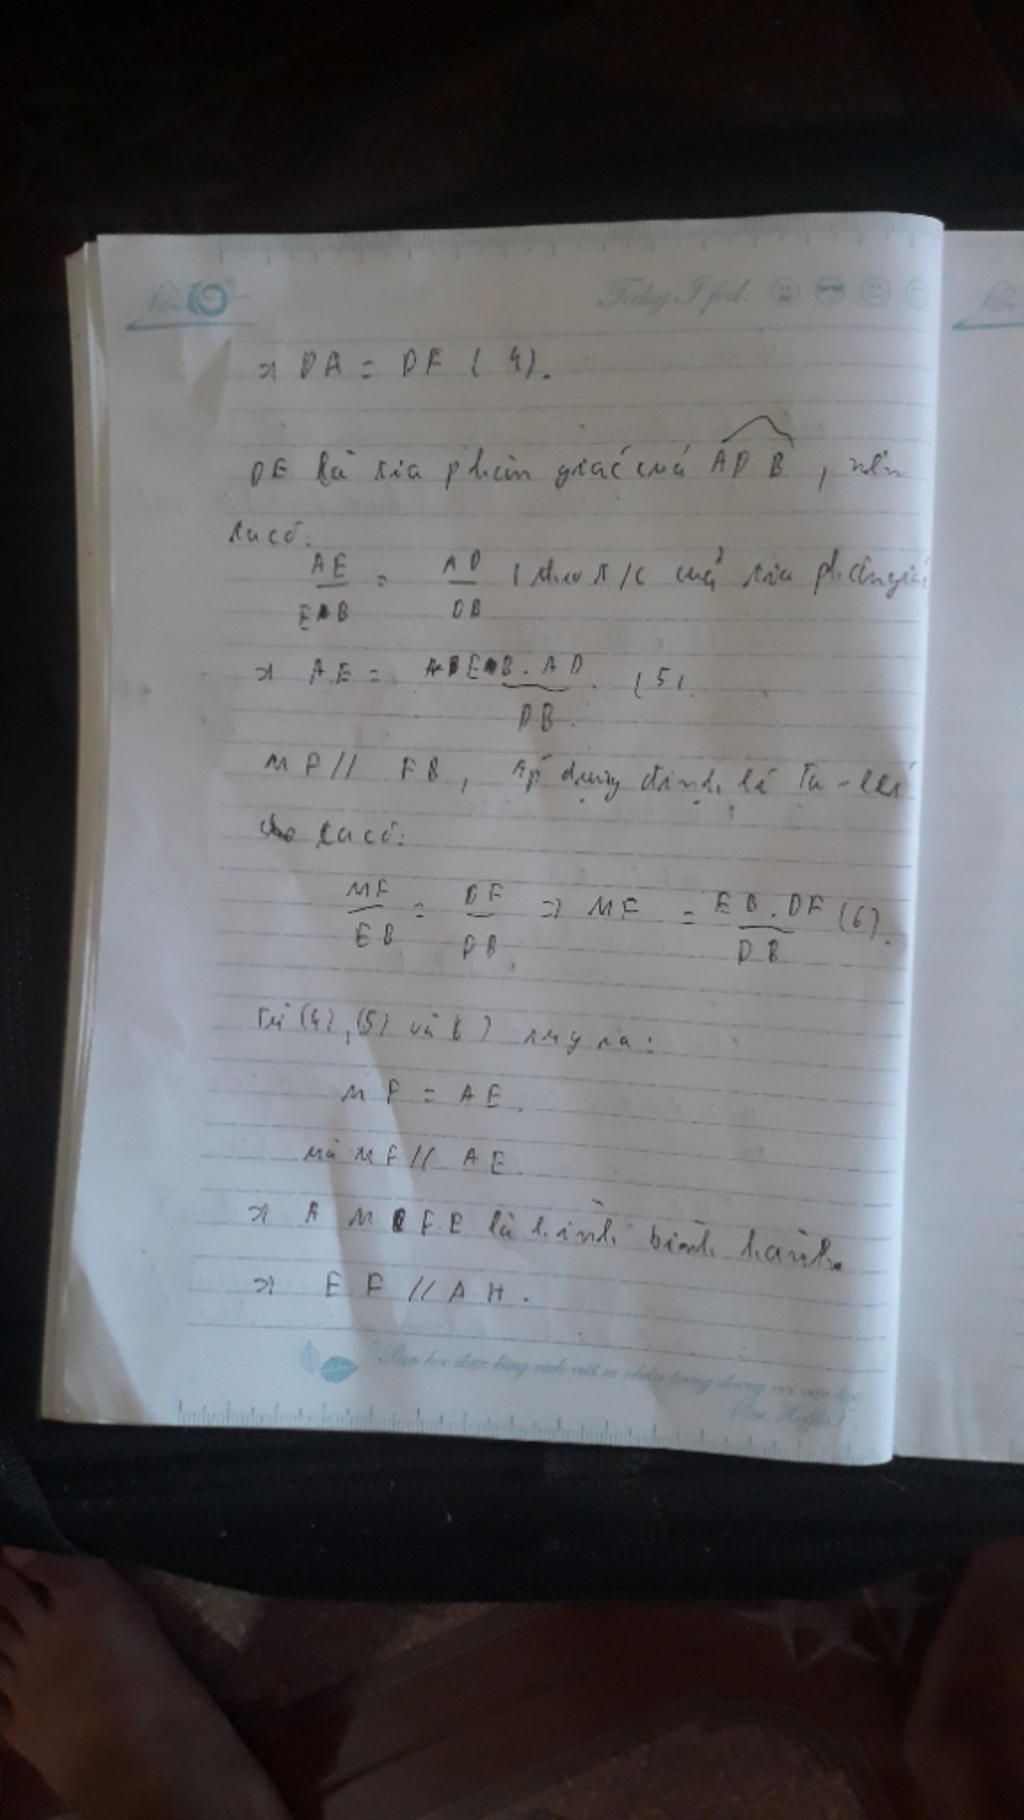 Today I feel:
=> DA = DF (4).
DE là tia phân giác cuả ADB, nên
ta có:
AE/EB = AD/DB (theo t/c cuả tia phân giác
=> AE = EB.AD/DB. (5).
MF // EB, Áp dụng định lí Ta-lét
ta có:
MF/EB = DF/DB => MF = EB.DF/DB (6).
Từ (4), (5) và 6) suy ra:
MF = AE.
mà MF // AE.
=> A M F E là hình bình hành
=> EF // AH.
Bạn học được bằng cách viết ra nhiều tương đương với việc học
(Eric Hoffer)